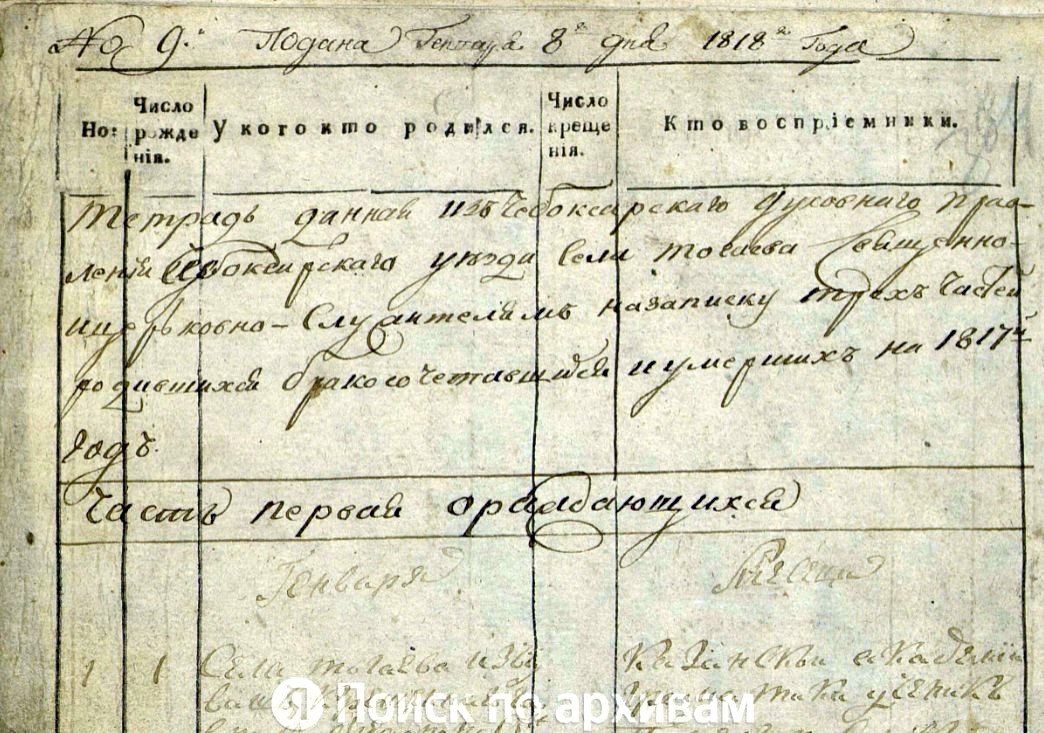 No 9. Подана Генваря 8 дня 1818 Года
Но:
Число рожденія.
У кого кто родился.
Число крещенія.
Кто воспріемники.
Тетрадь данная изъ Чебоксарскаго Духовнаго прав-
ленія Чебоксарскаго уезда села тогаева Священно-
ицерьковно-Служителямъ назаписку трехъ частей
родившихся бракосочетавшихся иумершихъ на 1817й
годъ.
Часть первая ораждающихся
Генваря Месяца
1 1 Села тогаева Казанской академіи
ученикъ
Поиск по архивам